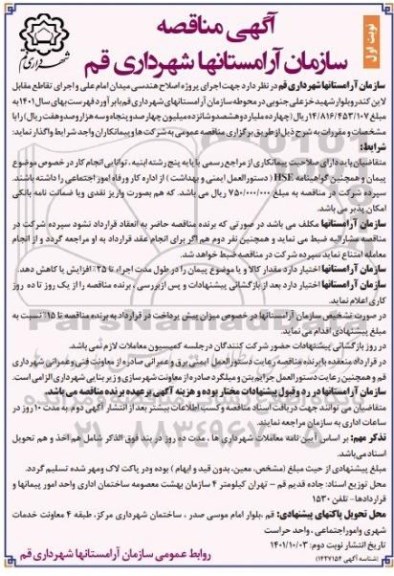 آگهی مناقصه
نوبت اول
سازمان آرامستانها شهرداری قم
شهرداری قم
سازمان آرامستانها شهرداری قم در نظر دارد جهت اجرای پروژه اصلاح هندسی میدان امام علی و اجرای تقاطع مقابل
لاین کندرو بلوار شهید خزعلی جنوبی در محوطه سازمان آرامستانهای شهرداری قم با برآورد فهرست بهای سال ۱۴۰۱ به
مبلغ ۱۴/۸۱۶/۴۵۳/۱۰۷ ریال (چهارده میلیارد و هشتصد و شانزده میلیون چهارصد و پنجاه و سه هزار و صد و هفت ریال) را با
مشخصات و مقررات به شرح ذیل از طریق برگزاری مناقصه عمومی به شرکت ها و پیمانکاران واجد شرایط واگذار نماید:
شرایط:
متقاضیان باید دارای صلاحیت پیمانکاری از مراجع رسمی با پایه پنج رشته ابنیه ، توانایی انجام کار در خصوص موضوع
پیمان و همچنین گواهینامه HSE (دستورالعمل ایمنی و بهداشت) از اداره کار و رفاه امور اجتماعی را داشته باشند.
سپرده شرکت در مناقصه به مبلغ ۷۵۰/۰۰۰/۰۰۰ ریال می باشد. که هم بصورت واریز نقدی و یا ضمانت نامه بانکی
امکان پذیر می باشد.
سازمان آرامستانها مکلف می باشد در صورتی که برنده مناقصه حاضر به انعقاد قرارداد نشود سپرده شرکت در
مناقصه مشارالیه ضبط می نماید و همچنین نفر دوم هم اگر برای انجام عقد قرارداد به او مراجعه گردد و از انجام
معامله امتناع نماید سپرده شرکت در مناقصه ضبط خواهد شد.
سازمان آرامستانها اختیار دارد مقدار کالا و یا موضوع پیمان را در طول مدت اجراء تا ۲۵٪ افزایش یا کاهش دهد.
سازمان آرامستانها اختیار دارد بعد از بازگشائی پیشنهادات و پس از بررسی ، برنده مناقصه را از یک روز تا ده روز
کاری اعلام نماید.
در صورت تشخیص سازمان آرامستانها در خصوص میزان پیش پرداخت در قرارداد به برنده مناقصه تا ۱۵٪ نسبت به
مبلغ پیشنهادی اقدام می نماید.
در روز بازگشائی پیشنهادات حضور شرکت کنندگان در جلسه کمیسیون معاملات لازم نمی باشد.
در قرارداد منعقده با برنده مناقصه رعایت دستورالعمل ایمنی برق و عمرانی صادره از معاونت فنی و عمرانی شهرداری
قم و همچنین رعایت دستورالعمل جرایم بتن و میلگرد صادره از معاونت شهرسازی و زیربنایی شهرداری الزامی است.
سازمان آرامستانها در رد و قبول پیشنهادات مختار بوده و هزینه آگهی بر عهده برنده مناقصه می باشد.
متقاضیان می توانند جهت دریافت اسناد مناقصه و کسب اطلاعات بیشتر بعد از انتشار آگهی دوم به مدت ۱۰ روز در
ساعات اداری به سازمان مراجعه نمایند.
تذکر مهم: بر اساس آیین نامه معاملات شهرداری ها ، مدت ده روز در بند فوق الذکر شامل هم اخذ و هم تحویل
اسناد می باشد.
مبلغ پیشنهادی از حیث مبلغ (مشخص، معین، بدون قید و ابهام) بوده و در پاکت لاک و مهر شده تسلیم گردد.
محل توزیع اسناد: جاده قدیم قم - تهران کیلومتر ۴ سازمان بهشت معصومه ساختمان اداری واحد امور پیمانها و
قراردادها- تلفن ۱۵۳۰
محل تحویل پاکتهای پیشنهادی: قم ،بلوار امام موسی صدر ، ساختمان شهرداری مرکز، طبقه ۴ معاونت خدمات
شهری و امور اجتماعی ، واحد حراست
تاریخ انتشار نوبت دوم: ۱۴۰۱/۱۰/۰۳
(شناسه آگهی ۱۴۲۷۱۵۴)
روابط عمومی سازمان آرامستانها شهرداری قم